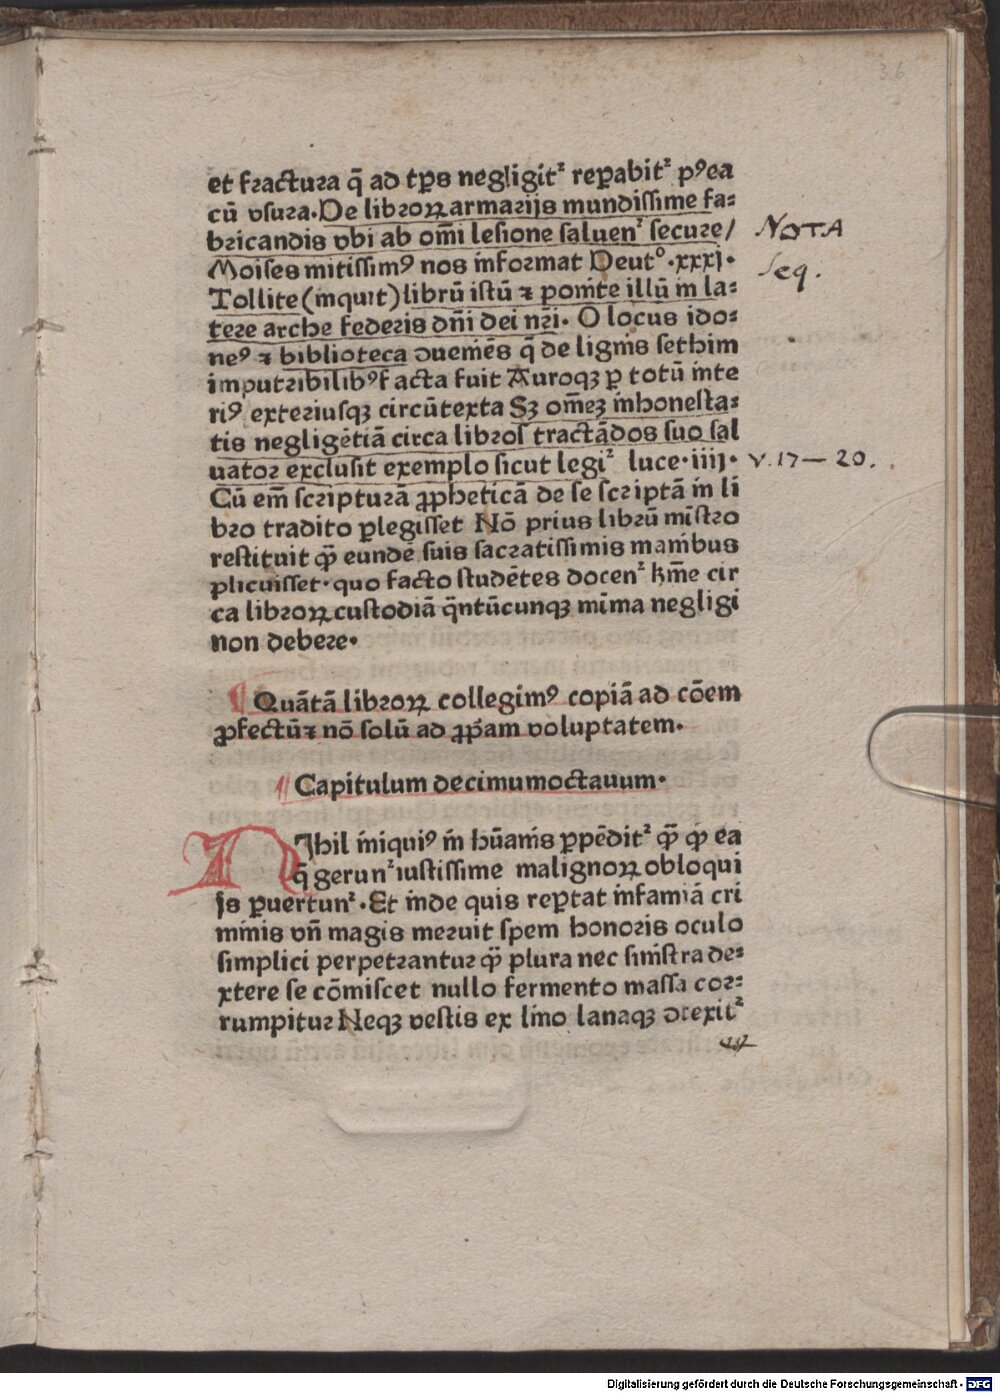 36
et fractura q̄ ad tp̄s negligit² rep̄abit² pꝰea
cū vsura. De libroꝝ armarijs mundissime fa⸗
bricandis vbi ab om̄i lesione saluen² secure/
NOTA
Moises mitissimꝰ nos informat Deut⁰.xxxj.
seq.
Tollite (inquit) librū istū ⁊ ponite illū in la⸗
tere arche federis dn̄i dei nr̄i. O locus ido⸗
neꝰ ⁊ biblioteca ↄueniēs q̄ de lignis sethim
imputribilibꝰ facta fuit Auroqꝫ ꝑ totū inte
riꝰ exteriusqꝫ circūtexta Sꝫ om̄eꝫ inhonesta⸗
tis negligētiā circa libros tractādos suo sal
uator exclusit exemplo sicut legi² luce.iiij.
v. 17 — 20.
Cū em̄ scripturā ꝓpheticā de se scriptā in li
bro tradito ꝑlegisset Nō prius librū mīstro
restituit qͫ̄ eundē suis sacratissimis manibus
plicuisset. quo facto studētes docen² hm̄e cir
ca libroꝝ custodiā q̄ntūcunqꝫ mīma negligi
non debere.
¶ Quātā libroꝝ collegimꝰ copiā ad cōem
ꝓfectū ⁊ nō solū ad ꝓpriam voluptatem.
¶ Capitulum decimumoctauum.
NJhil iniquiꝰ in hūanis ꝑpēdit² qͫ̄ qͩ ea
q̄ gerun² iustissime malignoꝝ obloqui
js ꝑuertun². Et inde quis reꝑtat infamiā cri
minis vn̄ magis meruit spem honoris oculo
simplici perpetrantur qͫ̄ plura nec sinistra de⸗
xtere se cōmiscet nullo fermento massa cor⸗
rumpitur Neqꝫ vestis ex lino lanaqꝫ ↄtexit²
Digitalisierung gefördert durch die Deutsche Forschungsgemeinschaft - DFG